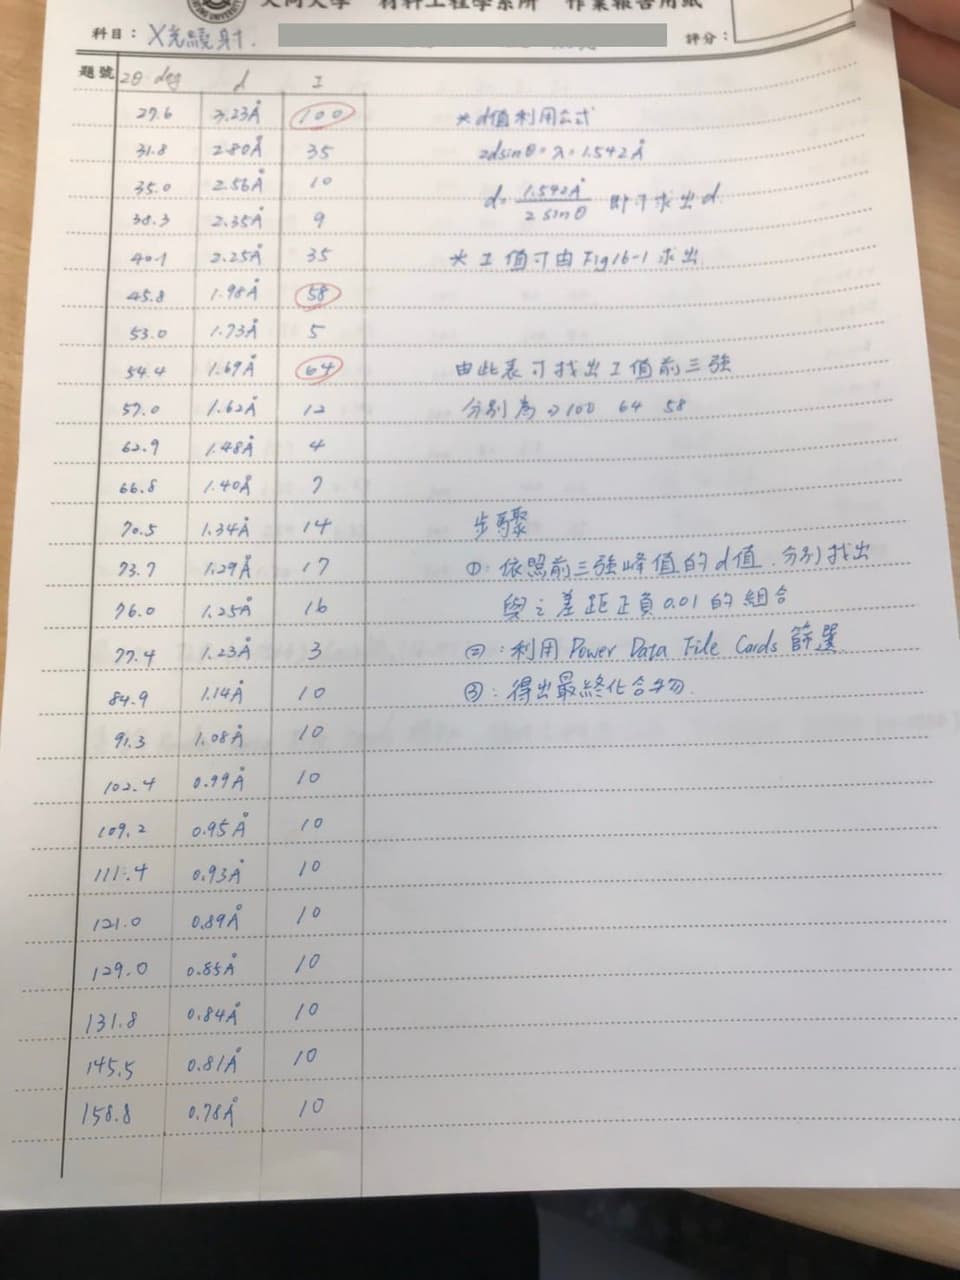 大同大學 材料工程學系所 作業報告用紙
科目：X光繞射. 評分：
題號 2θ deg d I
27.6 3.23Å 100 *d值利用公式
31.8 2.80Å 35 2dsinθ=λ=1.542Å
35.0 2.56Å 10 d=1.542Å/2 sinθ 即可求出d.
38.3 2.35Å 9
40.1 2.25Å 35 * I 值可由 Fig16-1 求出
45.8 1.98Å 58
53.0 1.73Å 5
54.4 1.69Å 64 由此表可找出 I 值前三強
57.0 1.62Å 12 分別為⇒100 64 58
62.9 1.48Å 4
66.8 1.40Å 7
70.5 1.34Å 14 步驟
73.7 1.29Å 17 ①：依照前三強峰值的d值．分別找出
76.0 1.25Å 16 與之差距正負0.01的組合
77.4 1.23Å 3 ②：利用Power Data File Cards 篩選
84.9 1.14Å 10 ③：得出最終化合物.
91.3 1.08Å 10
102.4 0.99Å 10
109.2 0.95Å 10
111.4 0.93Å 10
121.0 0.89Å 10
129.0 0.85Å 10
131.8 0.84Å 10
145.5 0.81Å 10
158.8 0.78Å 10